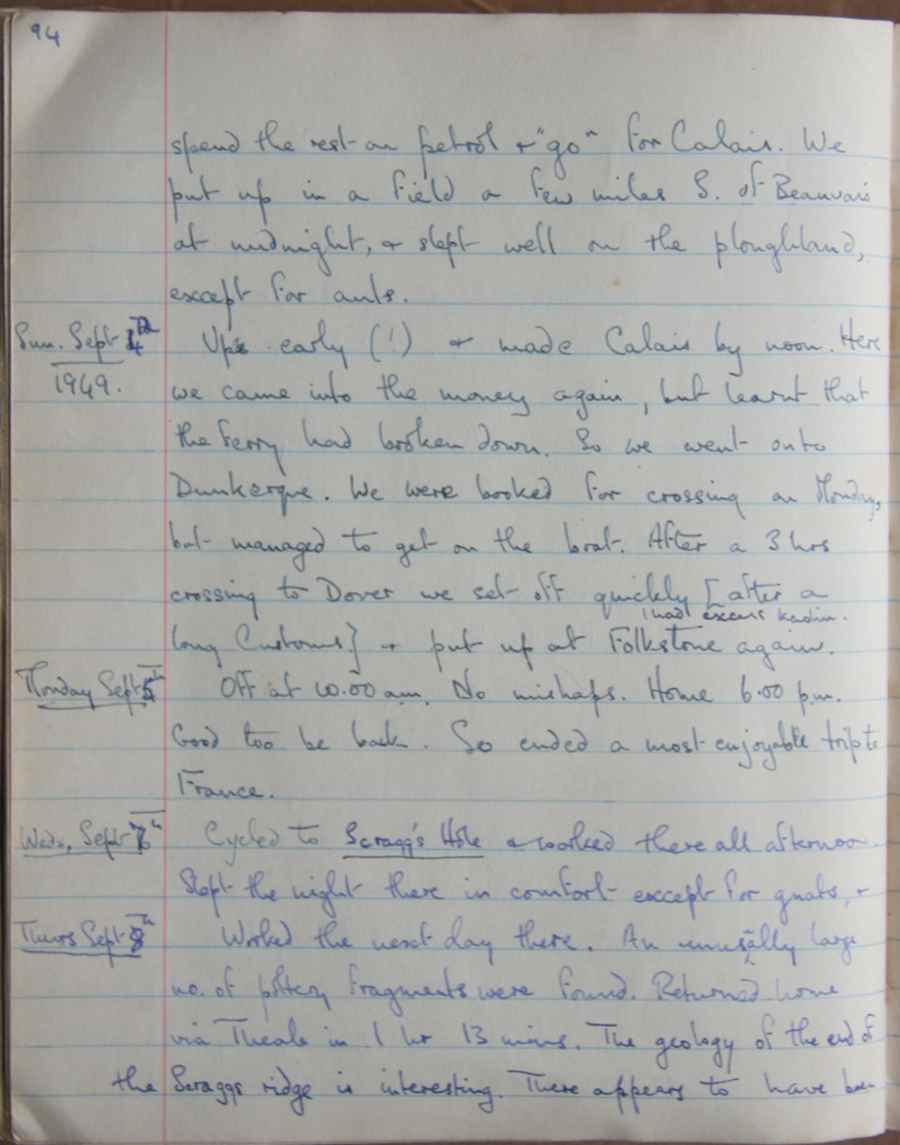 94
spend the rest on petrol + "go" for Calais. We
put up in a field a few miles S. of Beauvais
at midnight, & slept well on the ploughland,
except for ants.
Sun. Sept 4th
1949.
Up early (!) & made Calais by noon. Here
we came into the money again, but learnt that
the ferry had broken down. So we went onto
Dunkerque. We were booked for crossing on Monday,
but managed to get on the boat. After a 3 hrs
crossing to Dover we set off quickly [after a
had excess
long Customs] & put up at Folkstone again.
Monday Sept 5th
Off at 10.00 am. No mishaps. Home 6.00 pm.
Good too be back. So ended a most enjoyable trip to
France.
Weds, Sept 7th
Cycled to Scragg's Hole & worked there all afternoon.
Slept the night there in comfort except for gnats, &
Thurs Sept 8th
Worked the next day there. An unusally large
no. of pottery fragments were found. Returned home
via Theale in 1 hr 13 mins. The geology of the end of
the Scraggs ridge is interesting. There appears to have been